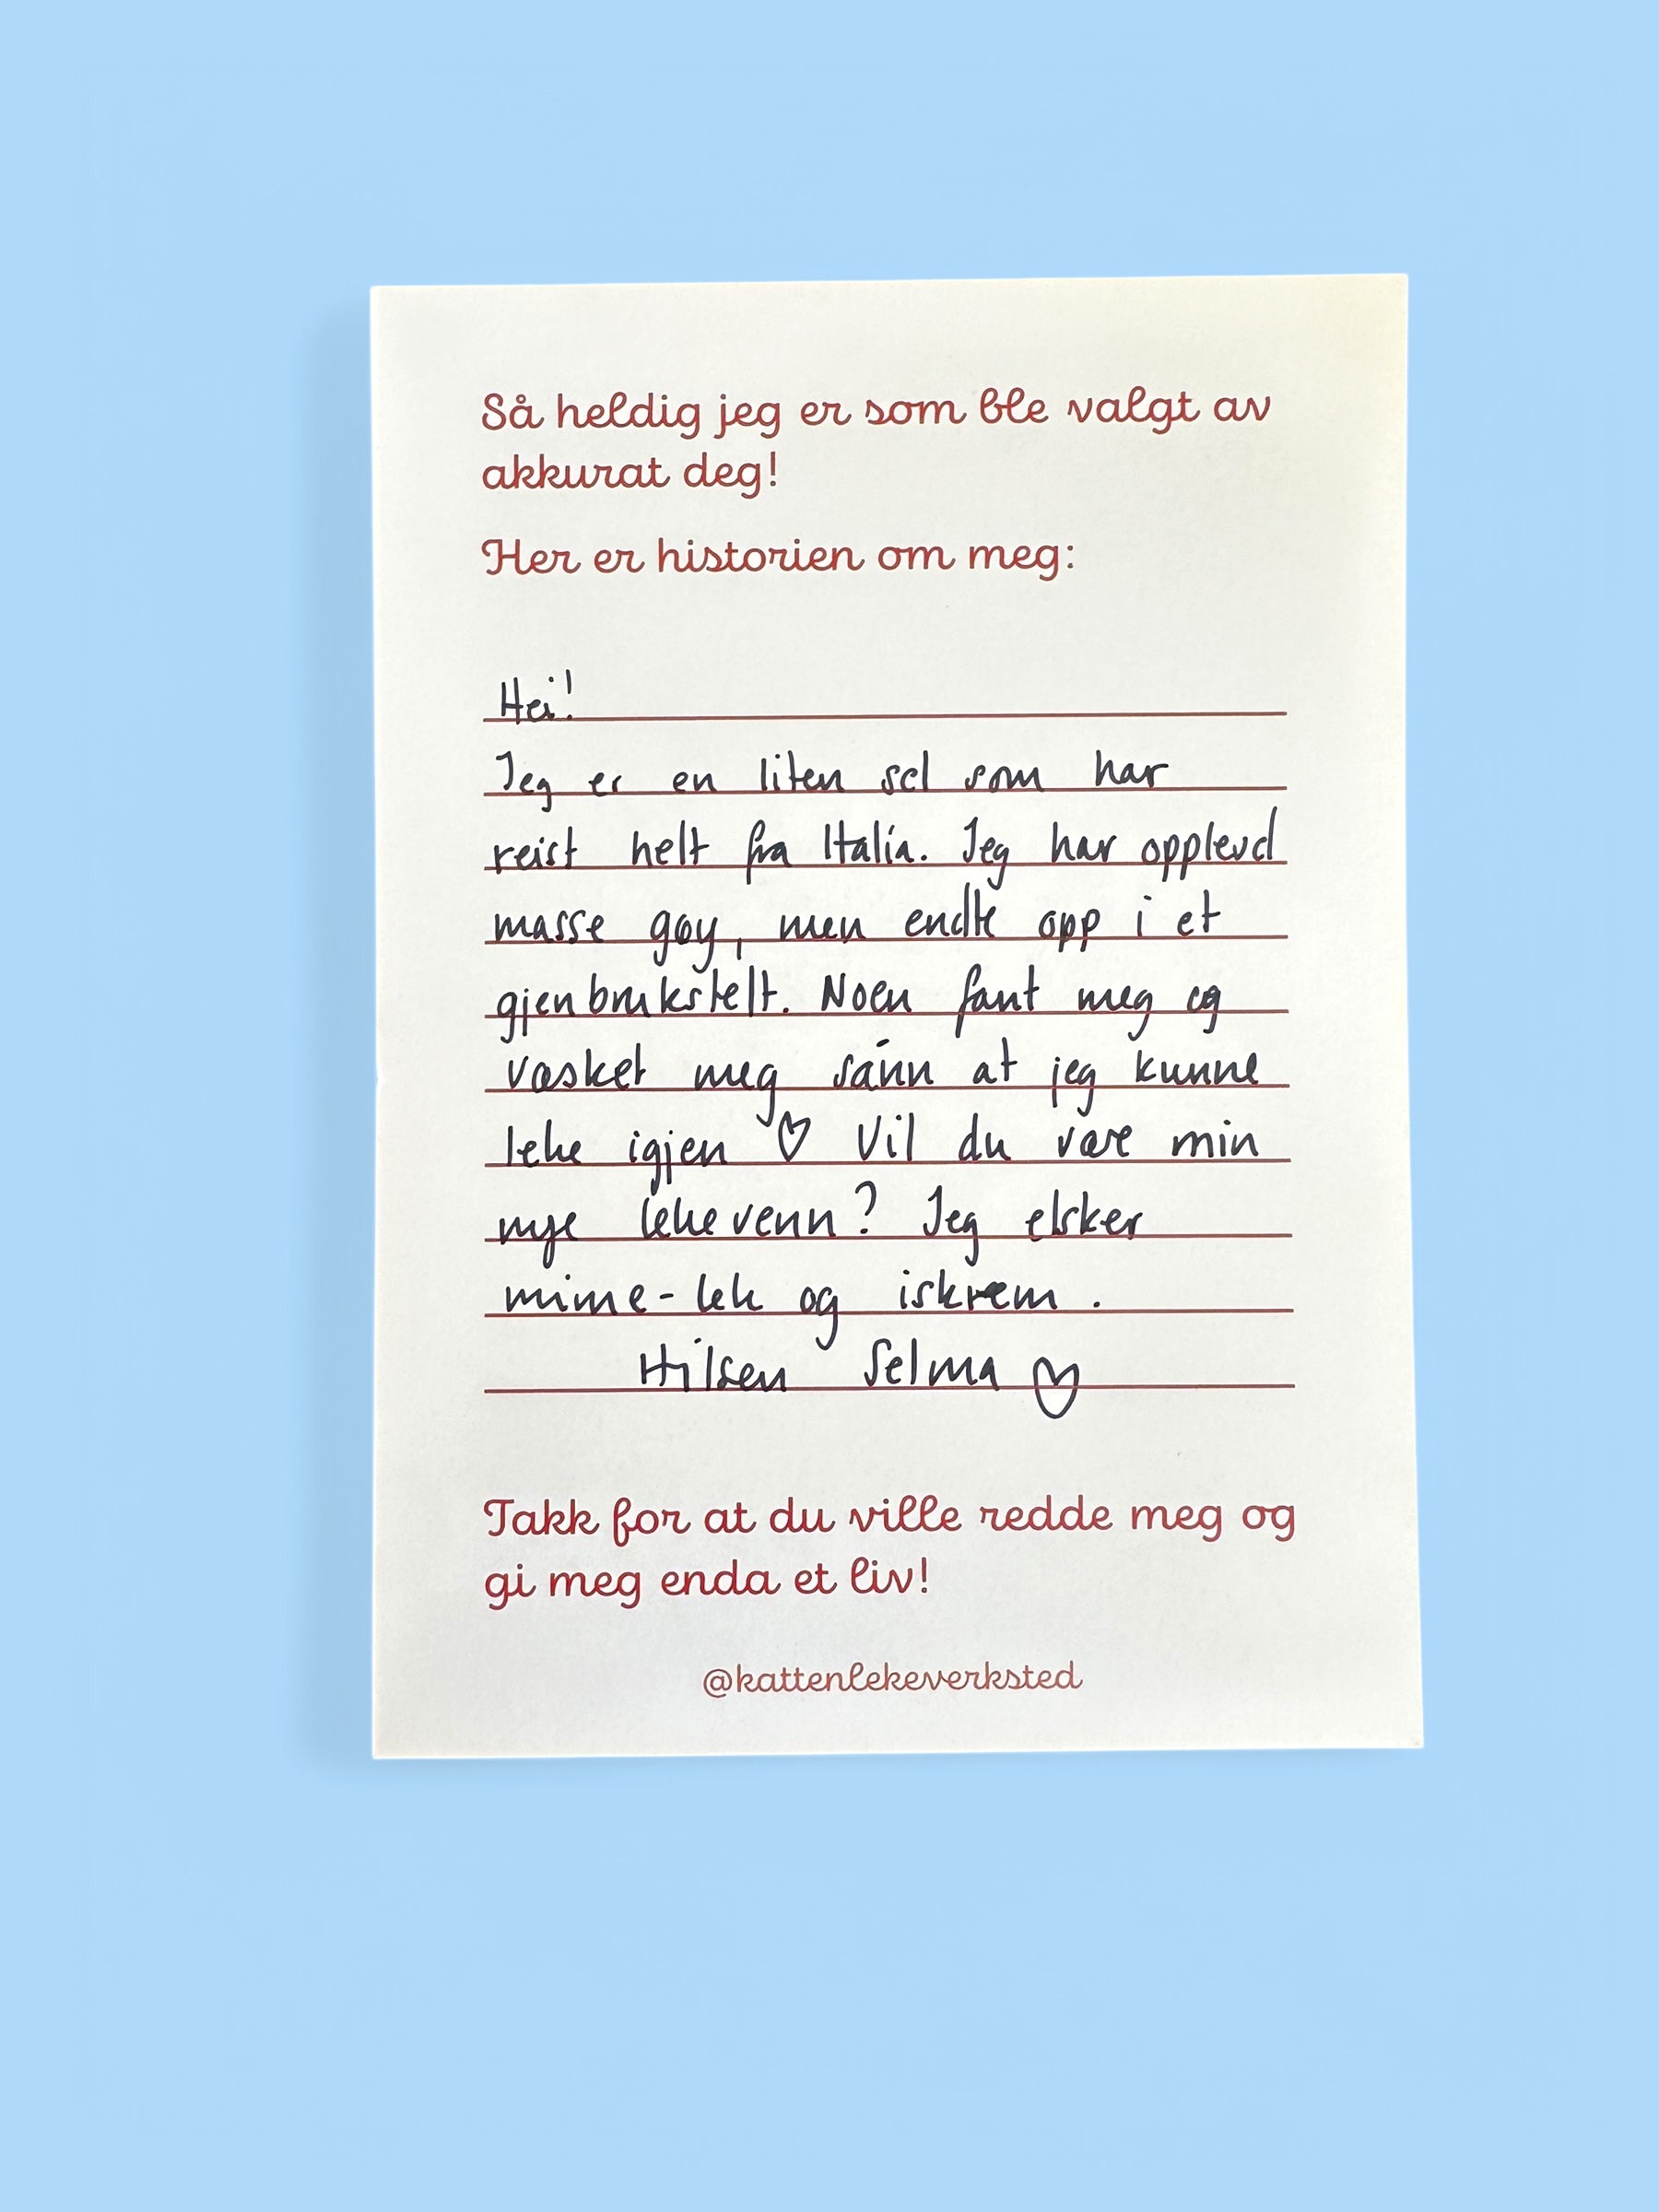 Så heldig jeg er som ble valgt av
akkurat deg!
Her er historien om meg:
Hei!
Jeg er en liten sel som har
reist helt fra Italia. Jeg har opplevd
masse gøy, men endte opp i et
gjenbrukstelt. Noen fant meg og
vasket meg sånn at jeg kunne
leke igjen ♡ Vil du være min
nye lekevenn? Jeg elsker
mime-lek og iskrem.
Hilsen Selma ♡
Takk for at du ville redde meg og
gi meg enda et liv!
@kattenlekeverksted